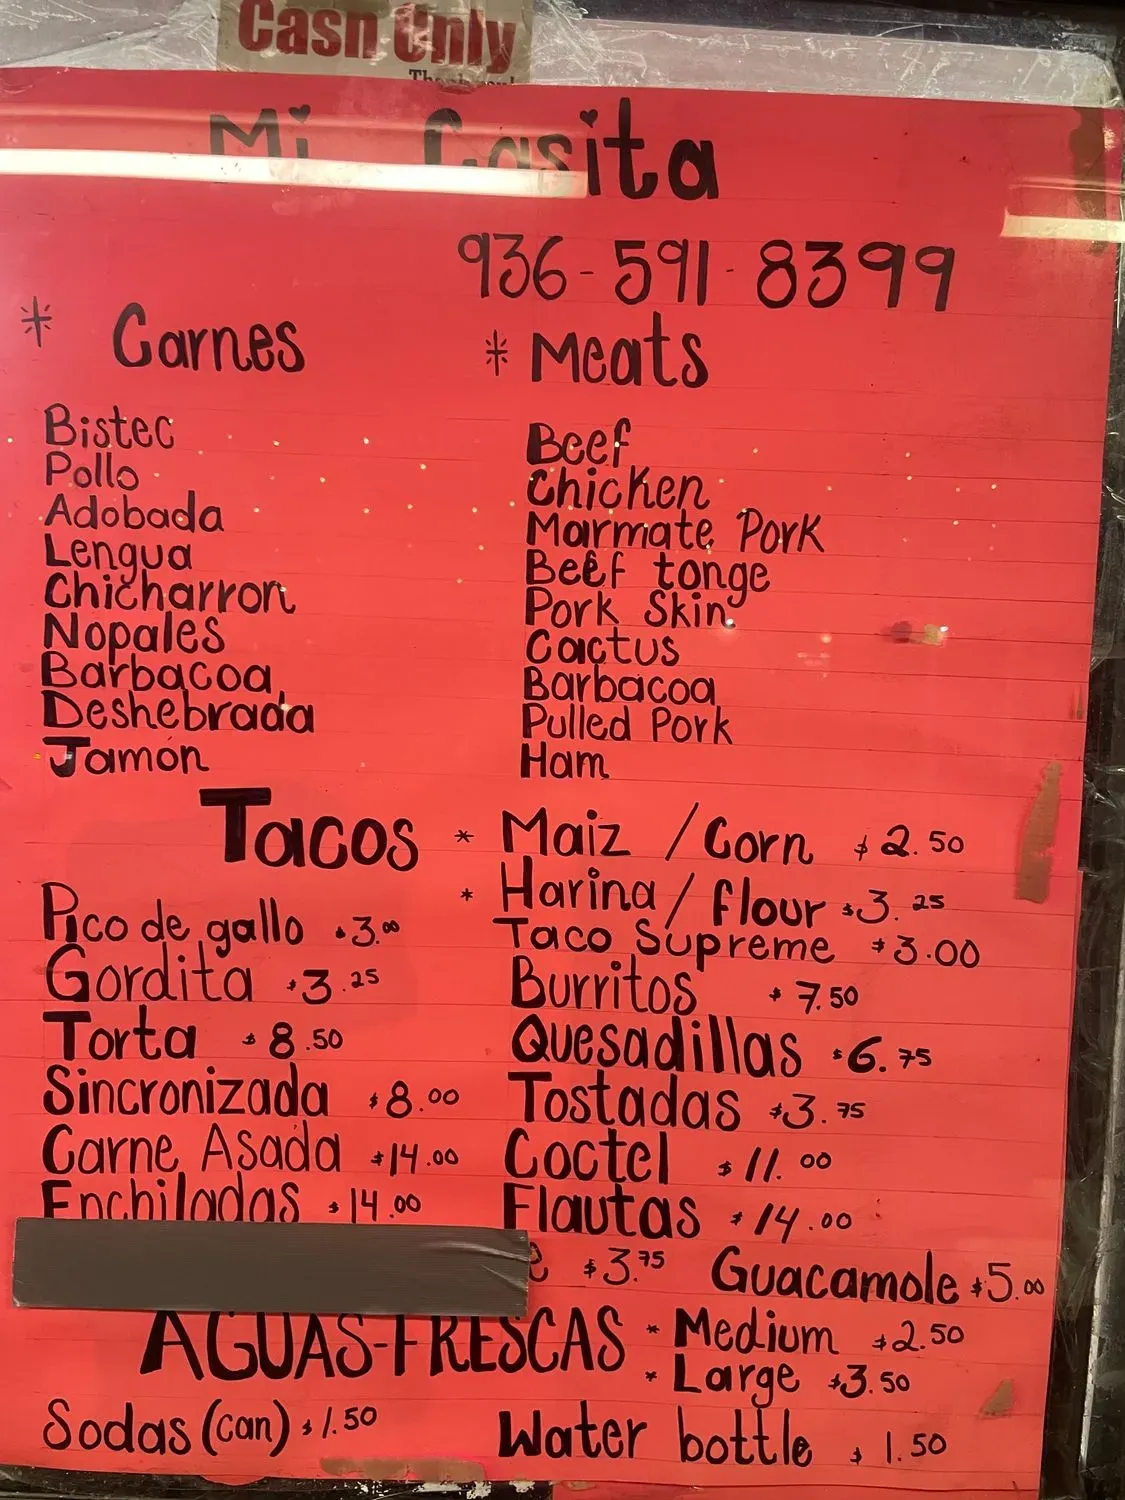 Cash Only
Mi Casita
936-591-8399
* Carnes
Bistec
Pollo
Adobada
Lengua
Chicharron
Nopales
Barbacoa
Deshebrada
Jamon
* Meats
Beef
Chicken
Marmate Pork
Beef tonge
Pork Skin
Cactus
Barbacoa
Pulled Pork
Ham
Tacos * Maiz / Corn $2.50
* Harina / flour $3.25
Pico de gallo $3.00
Taco Supreme $3.00
Gordita $3.25
Burritos $7.50
Torta $8.50
Quesadillas $6.75
Sincronizada $8.00
Tostadas $3.75
Carne Asada $14.00
Coctel $11.00
Enchiladas $14.00
Flautas $14.00
$3.75 Guacamole $5.00
AGUAS-FRESCAS * Medium $2.50
* Large $3.50
Sodas (can) $1.50
Water bottle $1.50